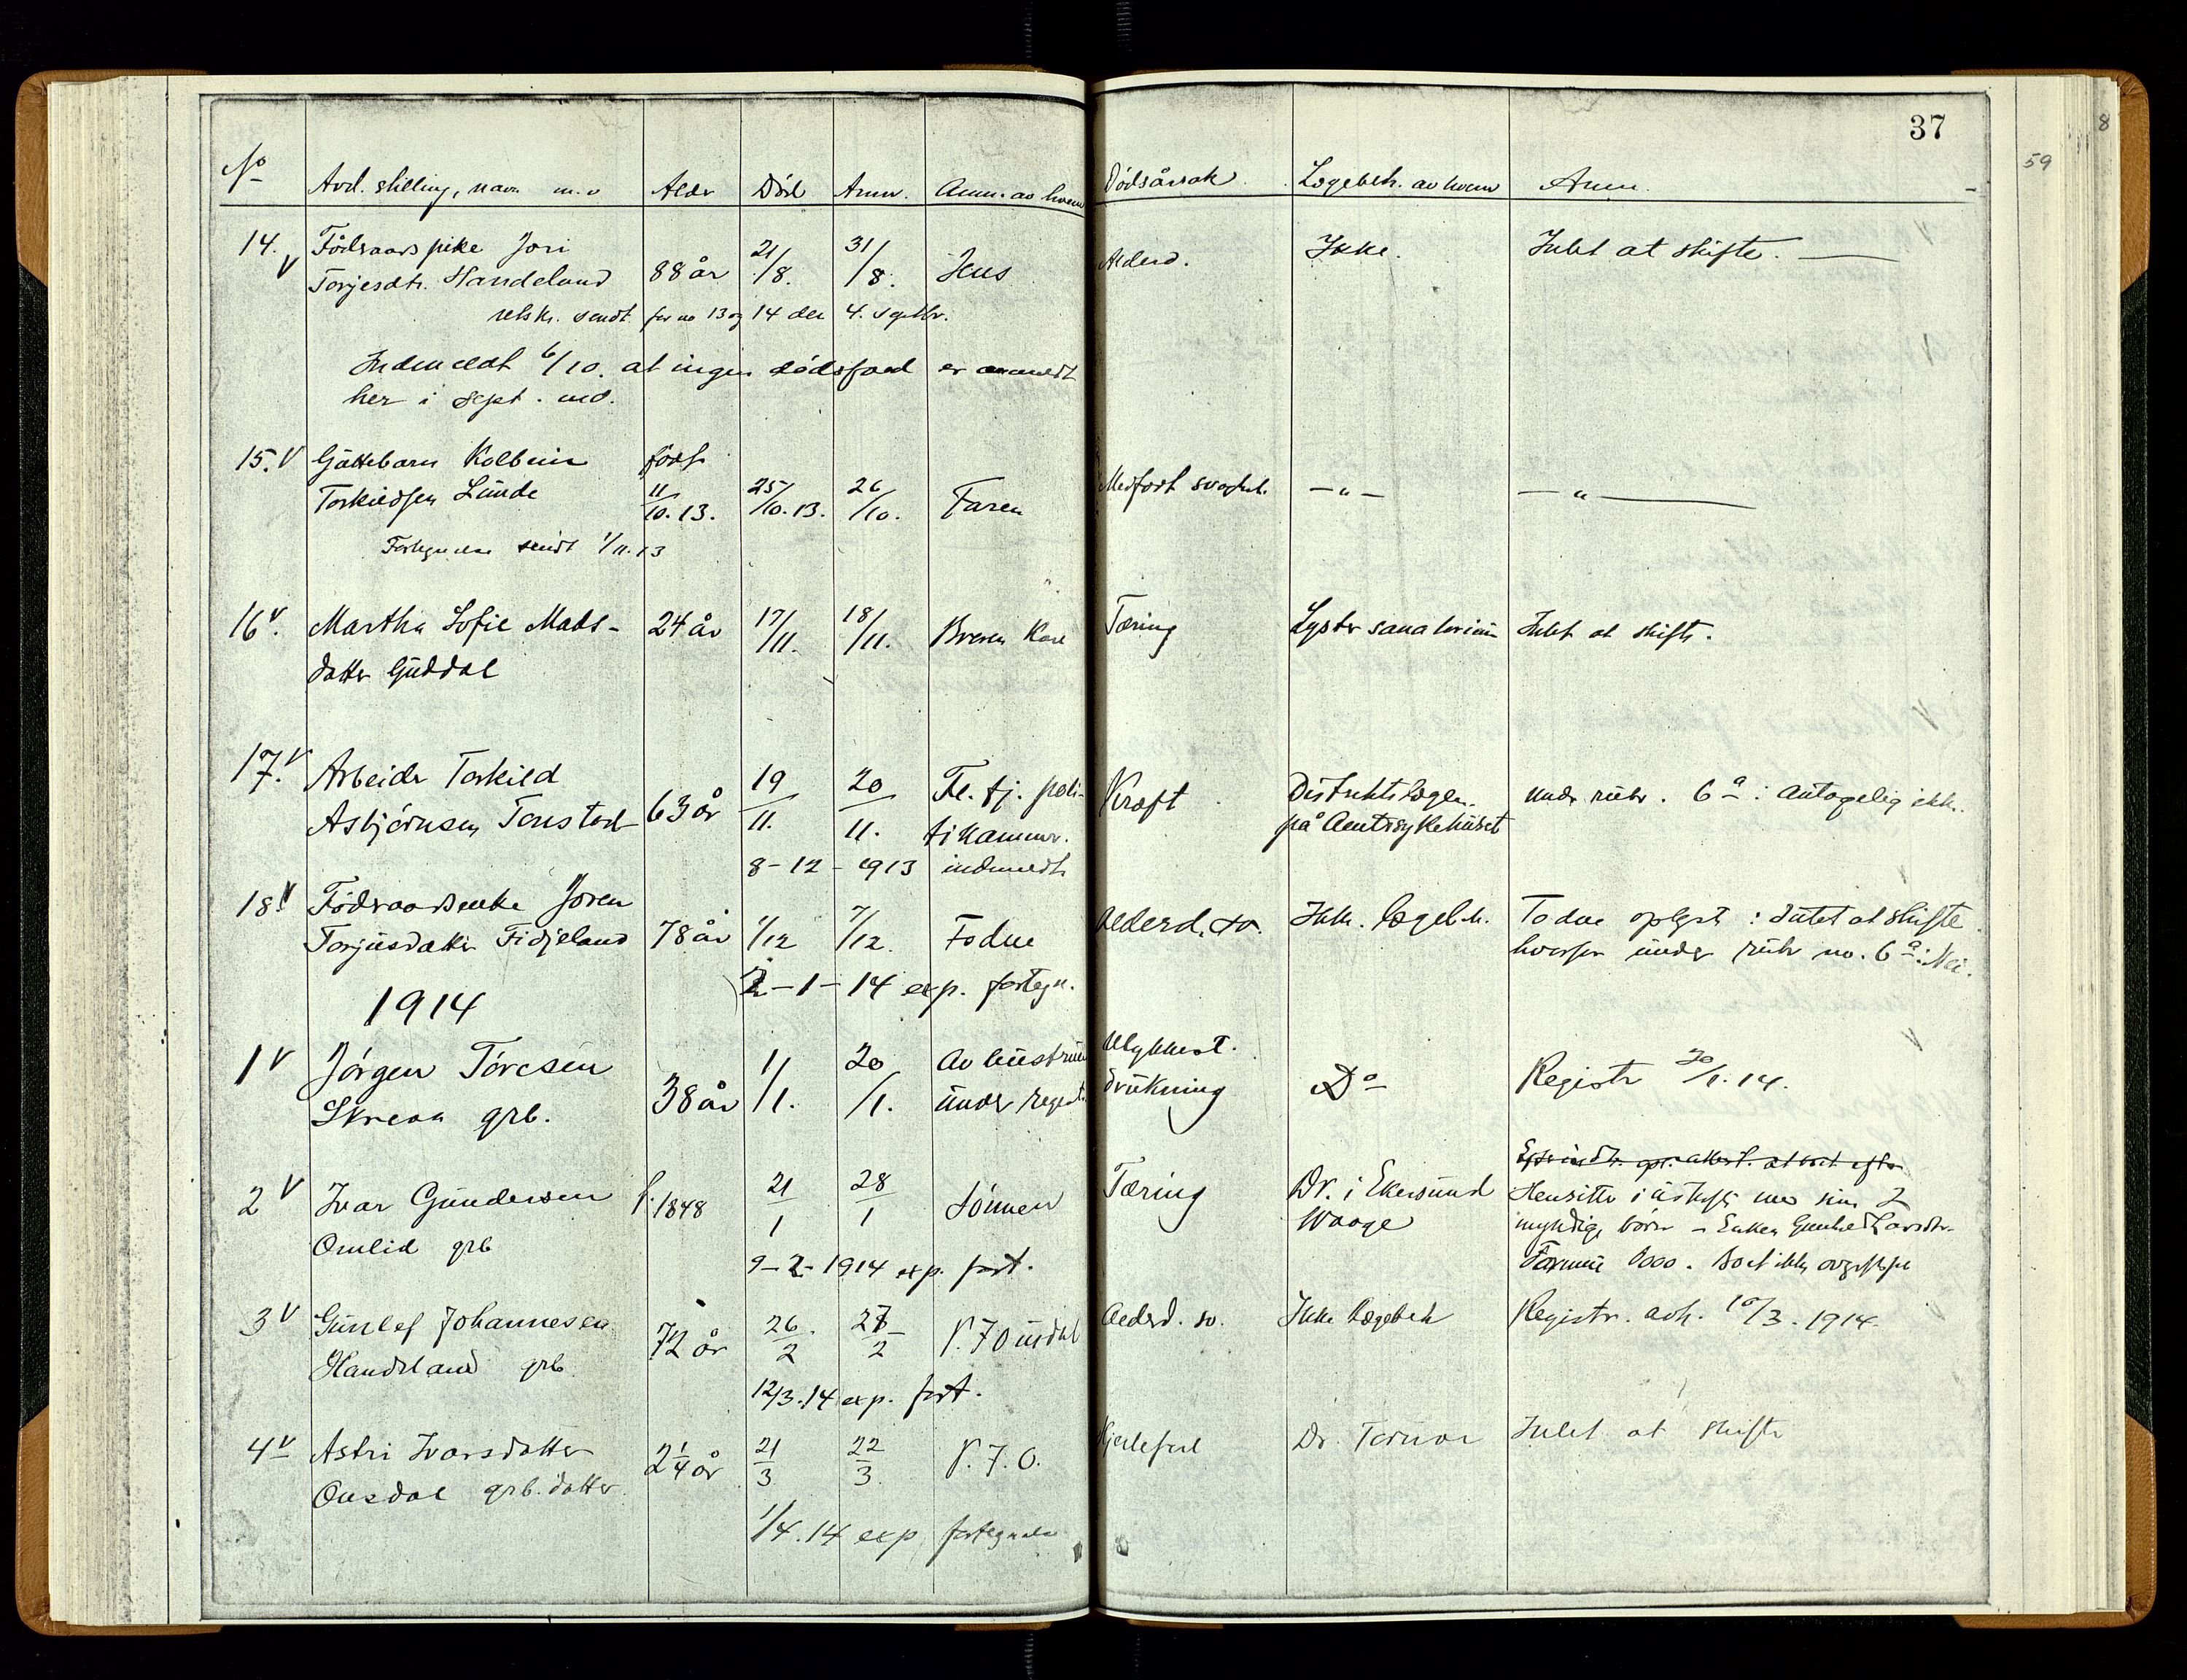 37
59
8
No Avd. stilling, navn m.v Alder Död Anm. Anm. av hvem Dödsårsak Lægebeh. av hvem Anm.
14. v Födraadspike Jori
Torjesdtr. Handeland 88 år 21/8. 31/8. Jens Alderd. Ikke. Intet at skifte.
sendt for no 13 og 14 den 4. septbr.
Indmeldt 6/10. at ingen dödsfald er anmeldt
her i sept. md.
15. v Gåttebarn Kolbein född
Torkildsen Lunde 11/10.13. 25/10.13. 26/10. Faren Medfödt svaghet. — " — — " —
Fortegnelse sendt 1/11.13
16 v. Martha Sofie Mads- 24 år 17/11. 18/11. Broren Karl Tæring Lyster sanatorium Intet at skifte.
datter Guddal
17. v Arbeider Torkild
Asbjörnsen Tonstad 63 år 19/11. 20/11. Fl. fj. poli-
tikammer. Kræft Distriktslægen
på Amtssykehuset under rubr. 6 a: Antagelig ikke.
8-12-1913 indmeldt
18 v Födraadsenke Joren
Torjusdatter Fidjeland 78 år 1/12 7/12. Todne Alderd. sv. Ikke lægebeh. Todne oplyste: Intet at skifte.
hvorfor under rubr no. 6 a: Nei.
2-1-14 exp. fortegn.
1914
1 v Jörgen Töresen
Skreaa grb. 38 år 11/1. 20/1. Av hustruen
under regist. Ulykkest.
drukning Do Registr 20/1.14.
2 v Ivar Gundersen f. 1848 21/1 28/1 Sönnen Tæring Dr. i Ekersund
Waage
Omlid grb
Hensitter i uskiftet med sine 2
myndige börn - Enken Gunhild Larsdtr.
Formue 1000. Boet ikke
9-2-1914 exp. fort.
3 v Gunlef Johannesen
Handeland grb. 72 år 26/2 27/2 P. J. Ousdal Alderd. sv. Ikke lægebeh Registr. avh. 10/3. 1914.
12/3.14 exp. fort.
4 v Astri Ivarsdatter
Ousdal grb. datter 2 1/4 år 21/3 22/3. P. J. O. Hjertefeil Dr. Intet at skifte
1/4.14 exp fortegnelse